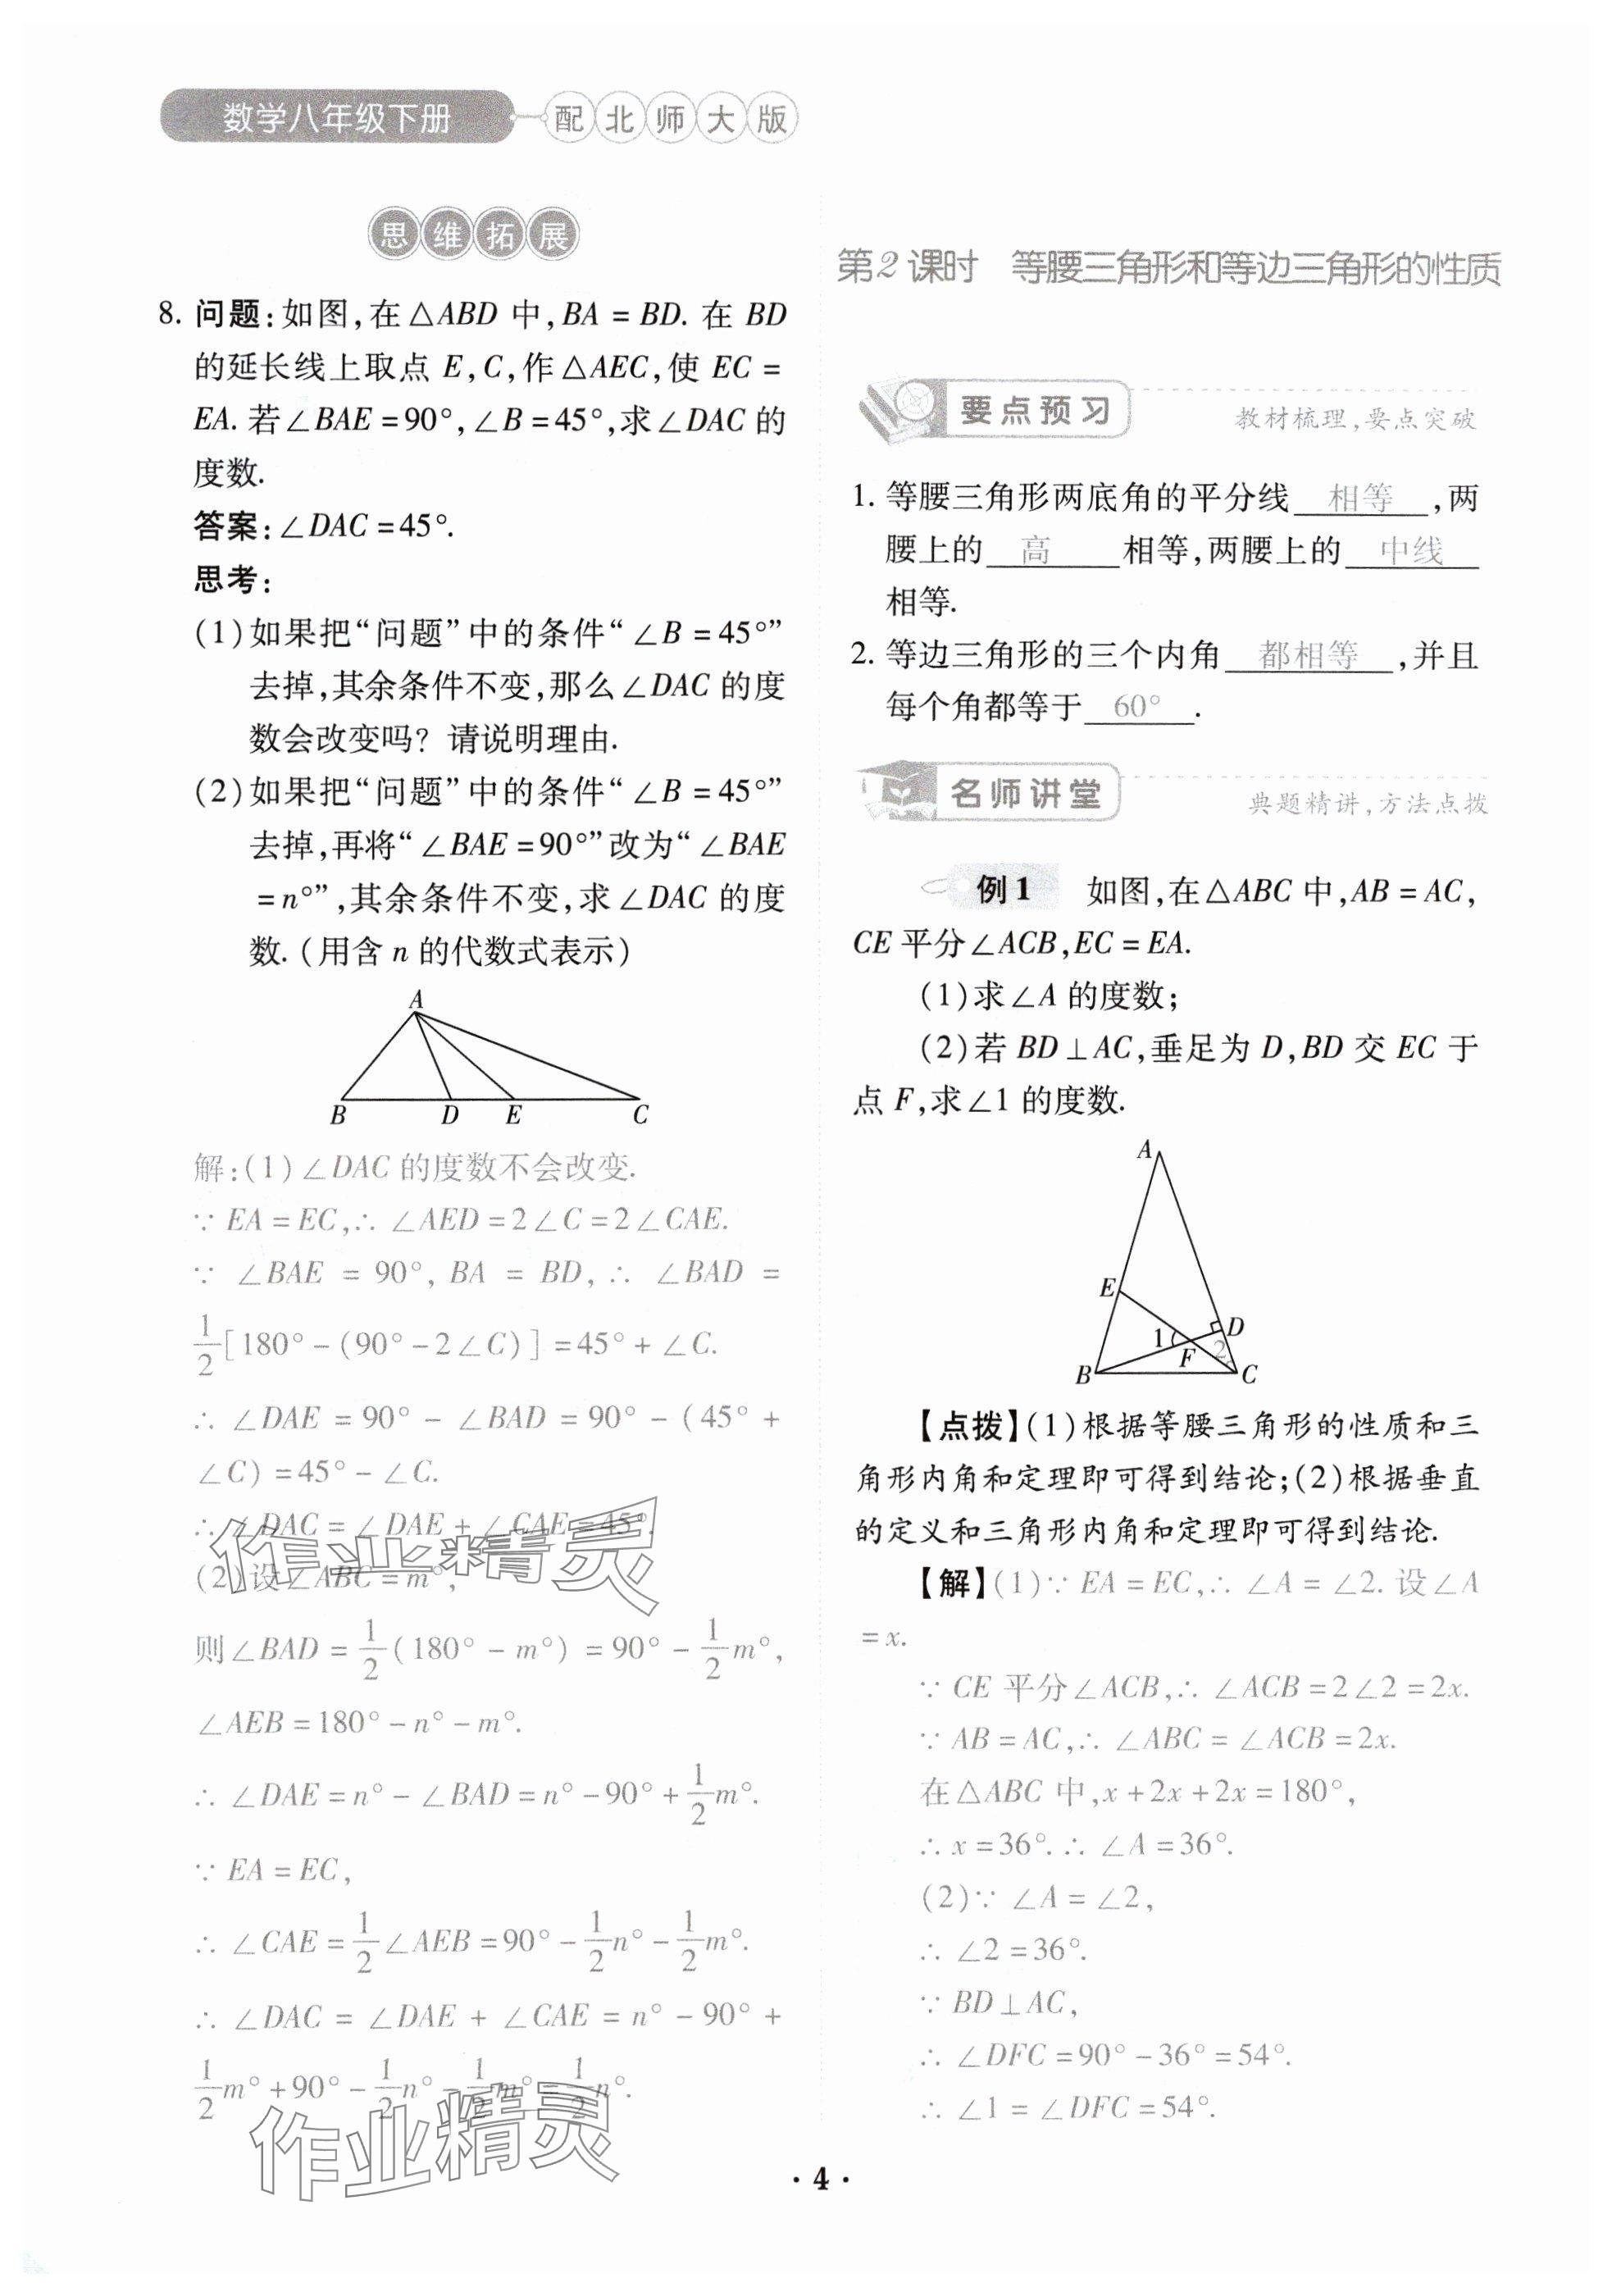 数学八年级下册 配北师大版
思维拓展
8. 问题:如图,在△ABD 中,BA = BD. 在 BD
的延长线上取点 E,C,作△AEC,使 EC =
EA. 若∠BAE = 90°,∠B = 45°,求∠DAC 的
度数.
答案:∠DAC = 45°.
思考:
(1)如果把“问题”中的条件“∠B = 45°”
去掉,其余条件不变,那么∠DAC 的度
数会改变吗? 请说明理由.
(2)如果把“问题”中的条件“∠B = 45°”
去掉,再将“∠BAE = 90°”改为“∠BAE
= n°”,其余条件不变,求∠DAC 的度
数.(用含 n 的代数式表示)
A
B D E C
解:(1)∠DAC 的度数不会改变.
∵ EA = EC,∴ ∠AED = 2∠C = 2∠CAE.
∵ ∠BAE = 90°, BA = BD, ∴ ∠BAD =
1/2[180° - (90° - 2∠C)] = 45° + ∠C.
∴ ∠DAE = 90° - ∠BAD = 90° - (45° +
∠C) = 45° - ∠C.
∴ ∠DAC = ∠DAE + ∠CAE = 45°.
作业精灵
(2)设∠ABC = m°,
则∠BAD = 1/2(180° - m°) = 90° - 1/2m°,
∠AEB = 180° - n° - m°.
∴ ∠DAE = n° - ∠BAD = n° - 90° + 1/2m°.
∵ EA = EC,
∴ ∠CAE = 1/2∠AEB = 90° - 1/2n° - 1/2m°.
∴ ∠DAC = ∠DAE + ∠CAE = n° - 90° +
1/2m° + 90° - 1/2n° - 1/2m° = 1/2n°.
作业精灵
第2课时 等腰三角形和等边三角形的性质
要点预习 教材梳理,要点突破
1. 等腰三角形两底角的平分线 相等 ,两
腰上的 高 相等,两腰上的 中线
相等.
2. 等边三角形的三个内角 都相等 ,并且
每个角都等于 60° .
名师讲堂 典题精讲,方法点拨
例1 如图,在△ABC 中,AB = AC,
CE 平分∠ACB,EC = EA.
(1)求∠A 的度数;
(2)若 BD⊥AC,垂足为 D,BD 交 EC 于
点 F,求∠1 的度数.
A
E
D
1
2
F
B C
【点拨】(1)根据等腰三角形的性质和三
角形内角和定理即可得到结论;(2)根据垂直
的定义和三角形内角和定理即可得到结论.
【解】(1)∵ EA = EC,∴ ∠A = ∠2. 设∠A
= x.
∵ CE 平分∠ACB,∴ ∠ACB = 2∠2 = 2x.
∵ AB = AC,∴ ∠ABC = ∠ACB = 2x.
在△ABC 中,x + 2x + 2x = 180°,
∴ x = 36°. ∴ ∠A = 36°.
(2)∵ ∠A = ∠2,
∴ ∠2 = 36°.
∵ BD⊥AC,
∴ ∠DFC = 90° - 36° = 54°.
∴ ∠1 = ∠DFC = 54°.
· 4 ·